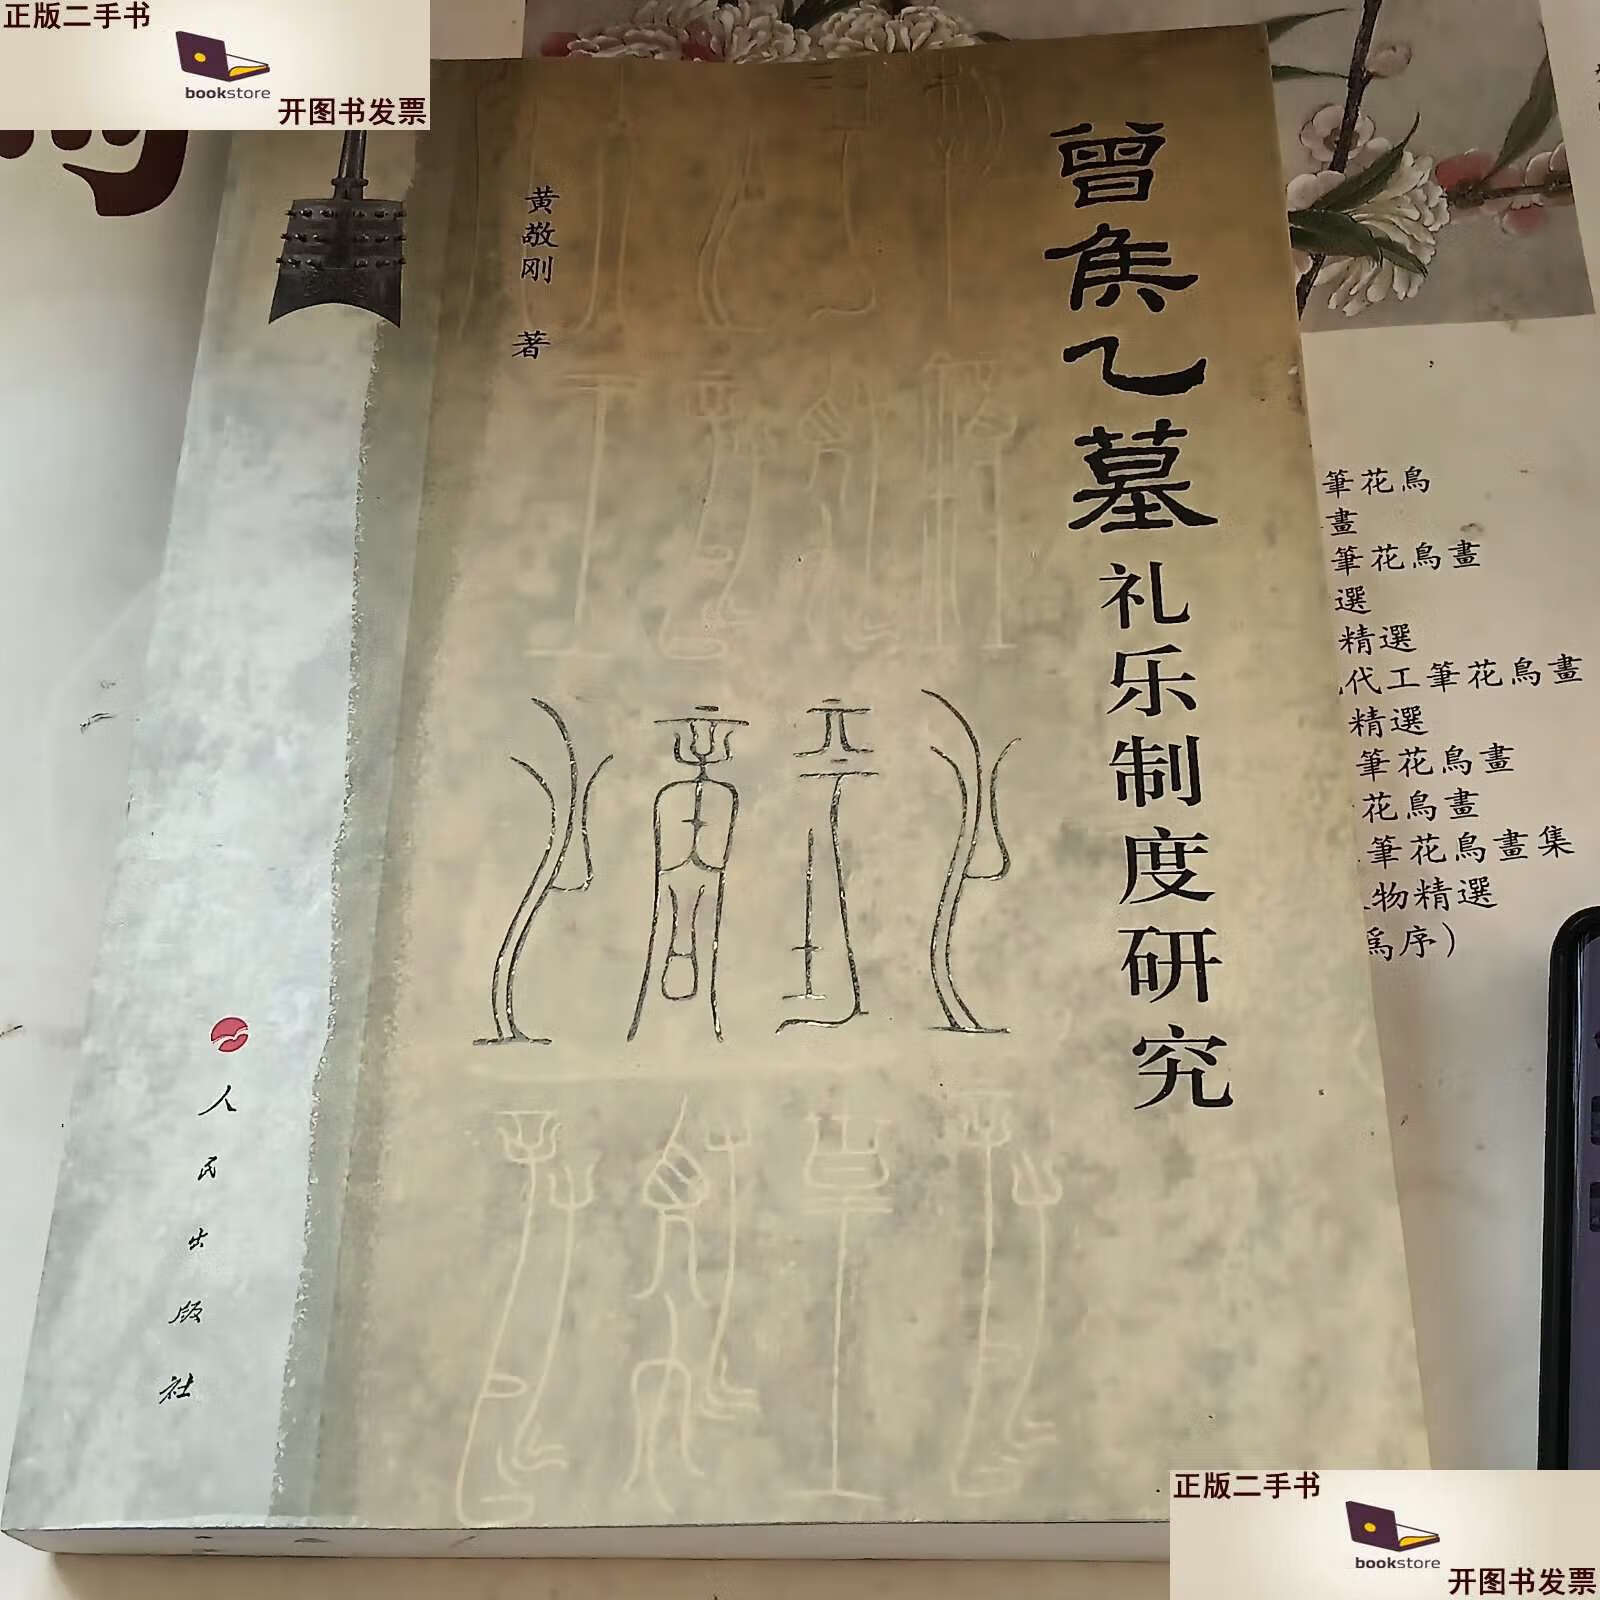 正版二手书
bookstore
开图书发票
曾侯乙墓礼乐制度研究
黄敬刚 著
人民出版社
筆花鳥
畫
筆花鳥畫
選
精選
代工筆花鳥畫
精選
筆花鳥畫
花鳥畫
筆花鳥畫集
物精選
爲序）
正版二手书
bookstore
开图书发票